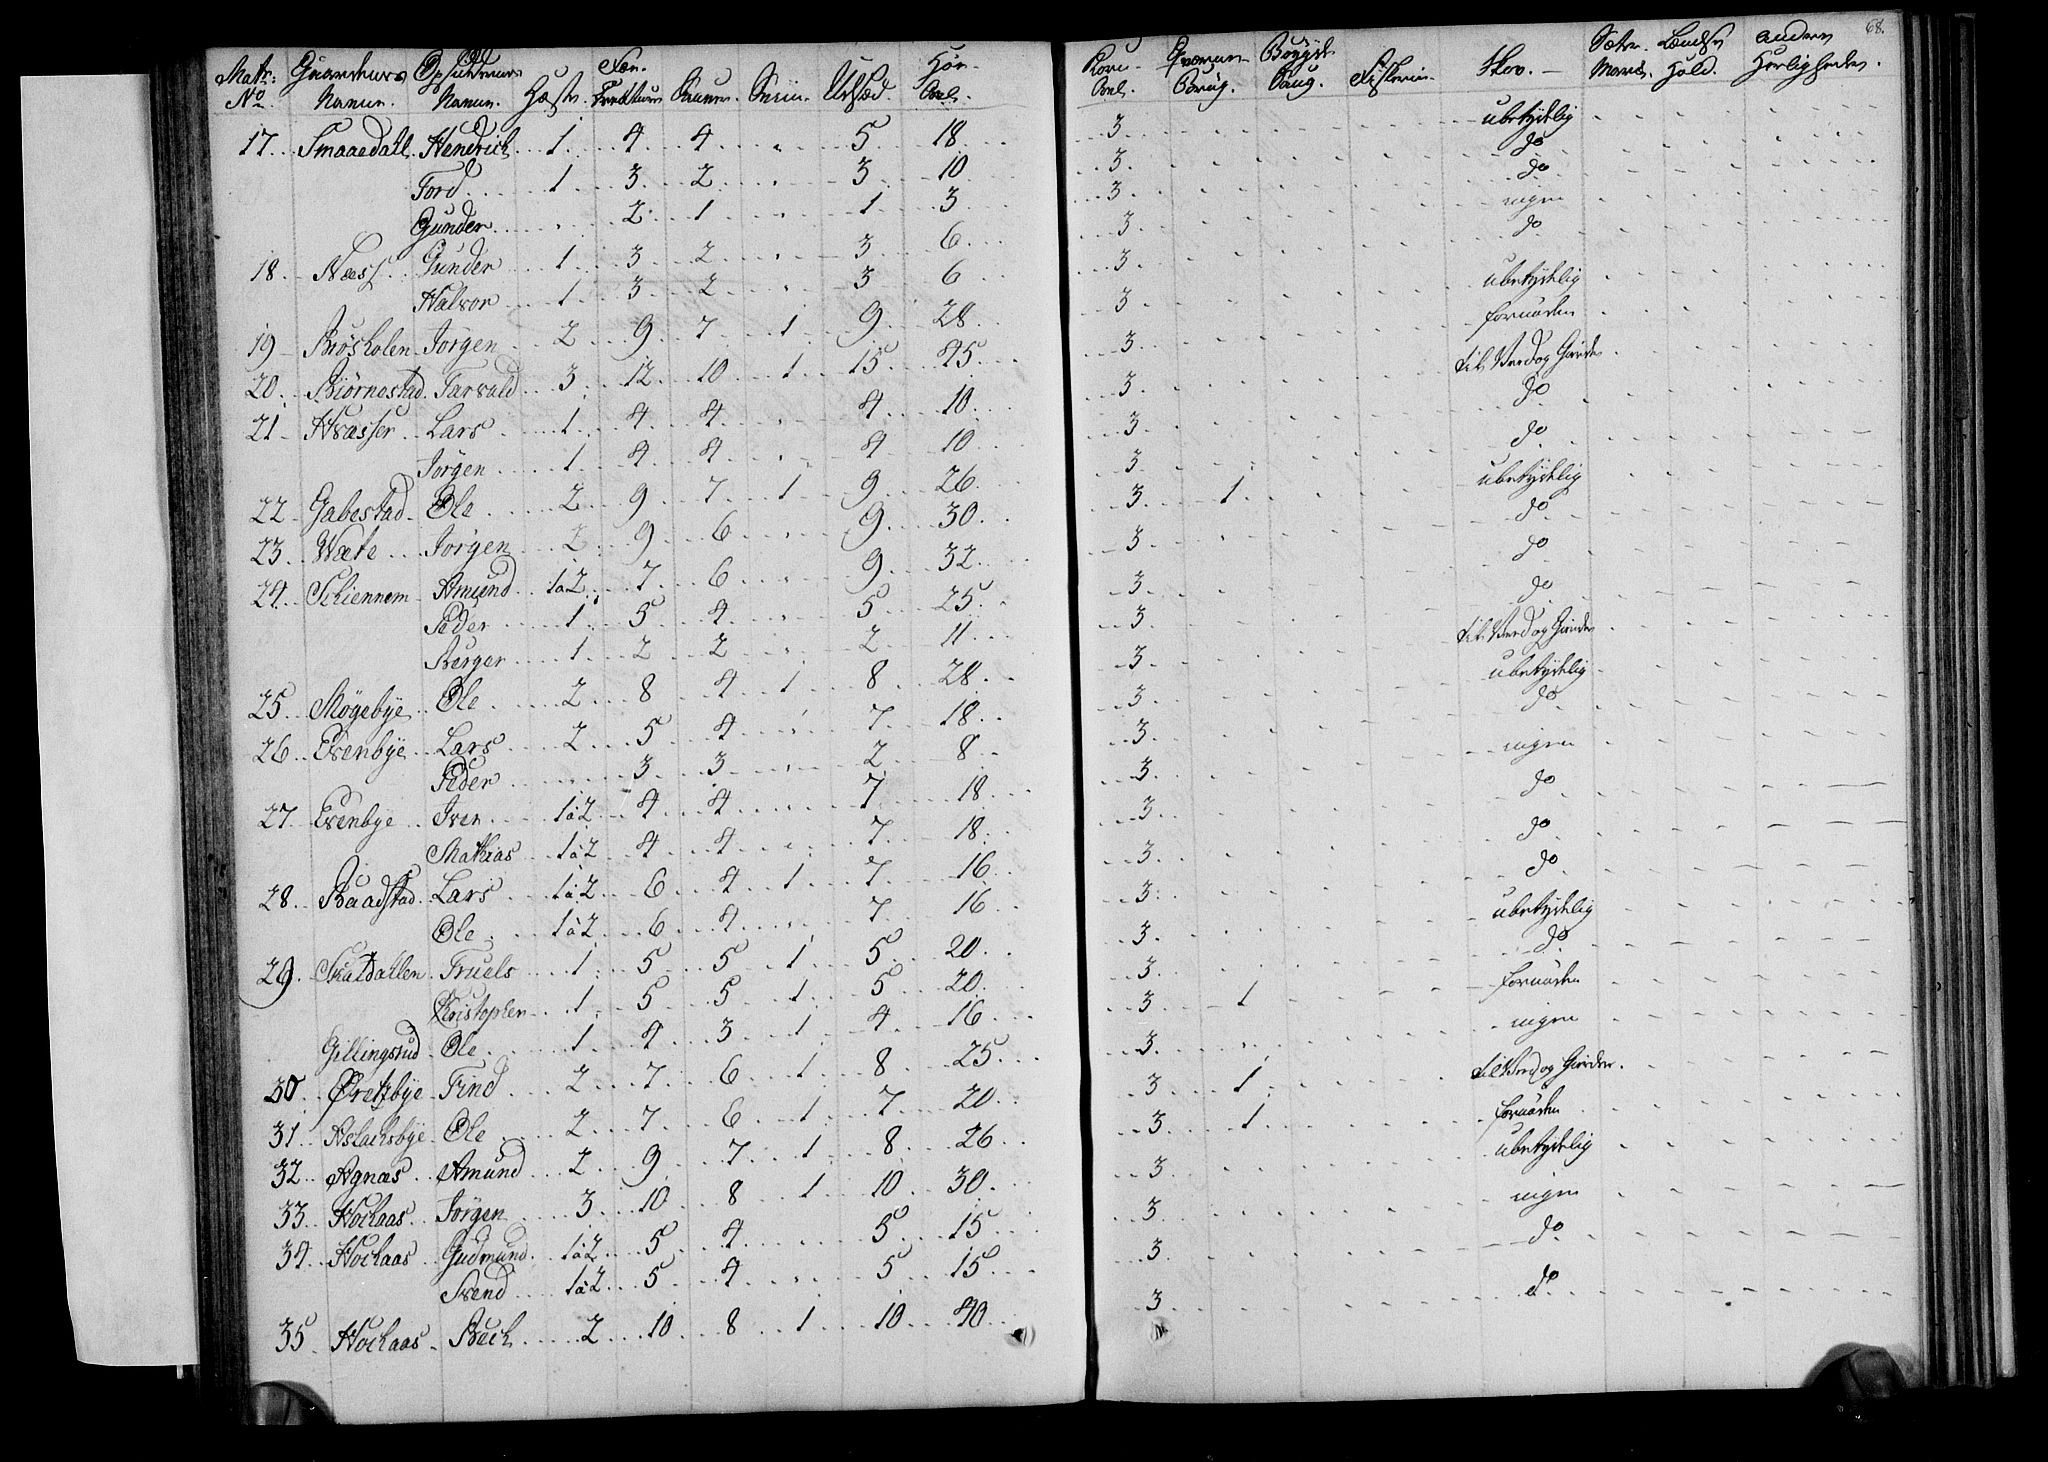 68.
Matr: No. Gaardenes Navne. Opsiddernes Navne. Hæste. Fæe- Creature Sauer. Sviin. Udsæd. Høe- Avl. Korn- Avl. Qværne- Brug. Bøygde Saug. Fiskerie. Skov. Sæter. Havn Hold. Andre Herligheder.
17. Smaaedall. Hendrich. 1. 4. 4. „ 5. 18. 3. ubetydelig
Tord. 1. 3. 2. „ 3. 10. 3. do
Gunder. „ 2. 1. „ 1. 3. 3. do
18. Næss. Gunder 1. 3. 2. „ 3. 6. 3. ingen
Halvor 1. 3. 2. „ 3. 6. 3. do
19. Brøsholen. Jørgen 2. 9. 7. 1. 9. 28. 3. ubetydelig
20. Biørnestad. Tarvald. 3. 12. 10. 1. 15. 45. 3. fornøden
21. Hvasser. Lars. 1. 4. 4. „ 4. 10. 3. til Ved og Gierde
Jørgen. 1. 4. 4. „ 4. 10. 3. do
22. Gabestad. Ole. 2. 9. 7. 1. 9. 26. 3. do
23. Wæte. Jørgen 2. 9. 6. „ 9. 30. 3. 1. ubetydelig
24. Schiennem. Amund 1a2. 7. 6. „ 9. 32. 3. do
Peder 1. 5. 4. „ 5. 25. 3. do
Berger 1. 2. 2. „ 2. 11. 3. do
25. Møgebye. Ole. 2. 8. 4. 1. 8. 28. 3. til Ved og Gierde
26. Evenbye. Lars. 2. 5. 4. „ 7. 18. 3. ubetydelig
Peder „ 3. 3. „ 2. 8. 3. do
27. Evenbye. Iver. 1a2. 4. 4. „ 7. 18. 3. ingen
Mathias 1a2. 4. 4. „ 7. 18. 3. do
28. Raadstad. Lars 1a2. 6. 4. 1. 7. 16. 3. do
Ole. 1a2. 6. 4. „ 7. 16. 3. do
29. Skaldallen. Truels 1. 5. 5. 1. 5. 20. 3. ubetydelig
Kristopher 1. 5. 5. 1. 5. 20. 3. do
Gillingsrud. Ole. 1. 4. 3. 1. 4. 16. 3. fornøden
30. Øretzbye. Find 2. 7. 6. 1. 8. 25. 3. 1. ingen
31. Aslachsbye. Ole 2. 7. 6. 1. 7. 20. 3. til Ved og Gierder.
32. Agnæs. Amund 2. 9. 7. 1. 8. 26. 3. 1. fornøden
33. Hochaas. Jørgen 3. 10. 8. 1. 10. 30. 3. 1. ubetydelig
34. Hochaas Gudmund. 1a2. 5. 4. „ 5. 15. 3. ingen
Svend 1a2. 5. 4. „ 5. 15. 3. do
35. Hochaas. Bech. 2. 10. 8. 1. 10. 40. 3. do